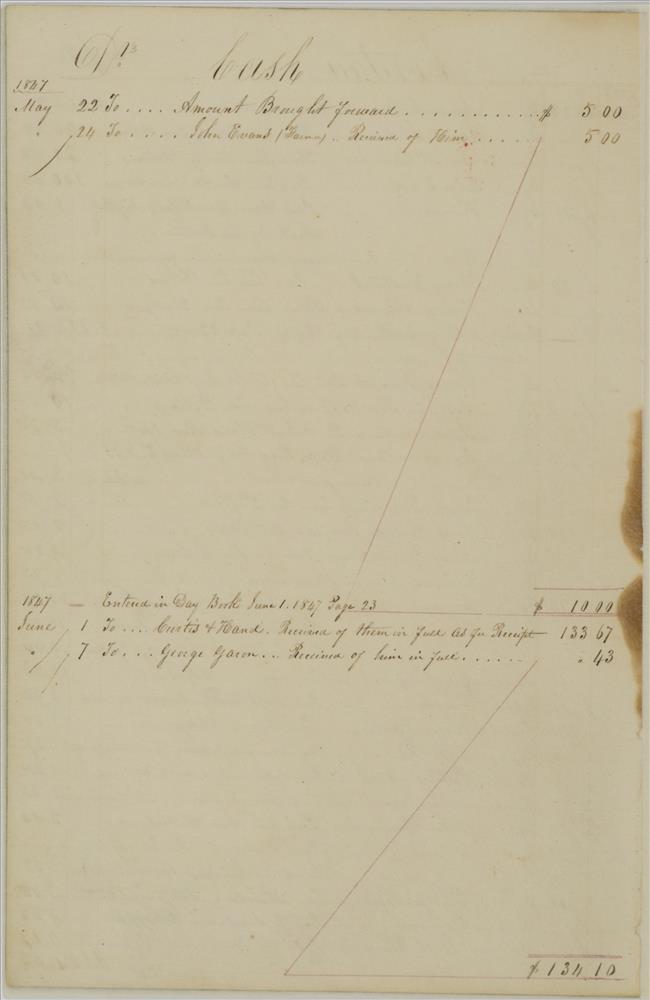 Dr. Cash
1847
May 22 To .... Amount Brought forward ............ $ 5 00
" 24 To .... John Evans () .. Received of Him ...... 5 00
1847 — Entered in Day Book June 1. 1847 Page 23 $ 10 00
June 1 To .... Curtis & Hand. Received of them in full as per Receipt 133 67
" 7 To ... George Garon ... Received of him in full ...... " 43
$ 134 10